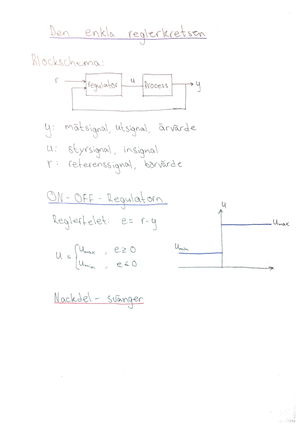 Den enkla reglerkretsen
Blockschema:
r regulator u Process y
y: mätsignal, utsignal, ärvärde
u: styrsignal, insignal
r: referenssignal, börvärde
ON-OFF-Regulatorn
Reglerfelet: e = r-y
u = { Umax, e≥0
Umin, e<0
u
Umax
Umin
Nackdel - svänger